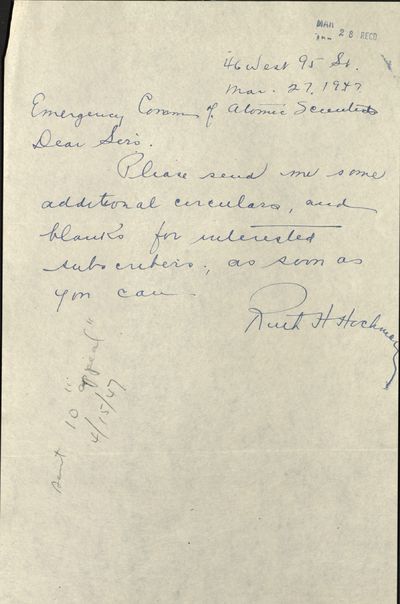 MAR 28 RECD
46 West 95 St.
Mar. 27, 1947
Emergency Comm of Atomic Scientists
Dear Sirs.
Please send me some
additional circulars, and
blanks for interested
subscribers, as soon as
you can
Ruth H Hochman
sent 10 "appeal"
4/15/47